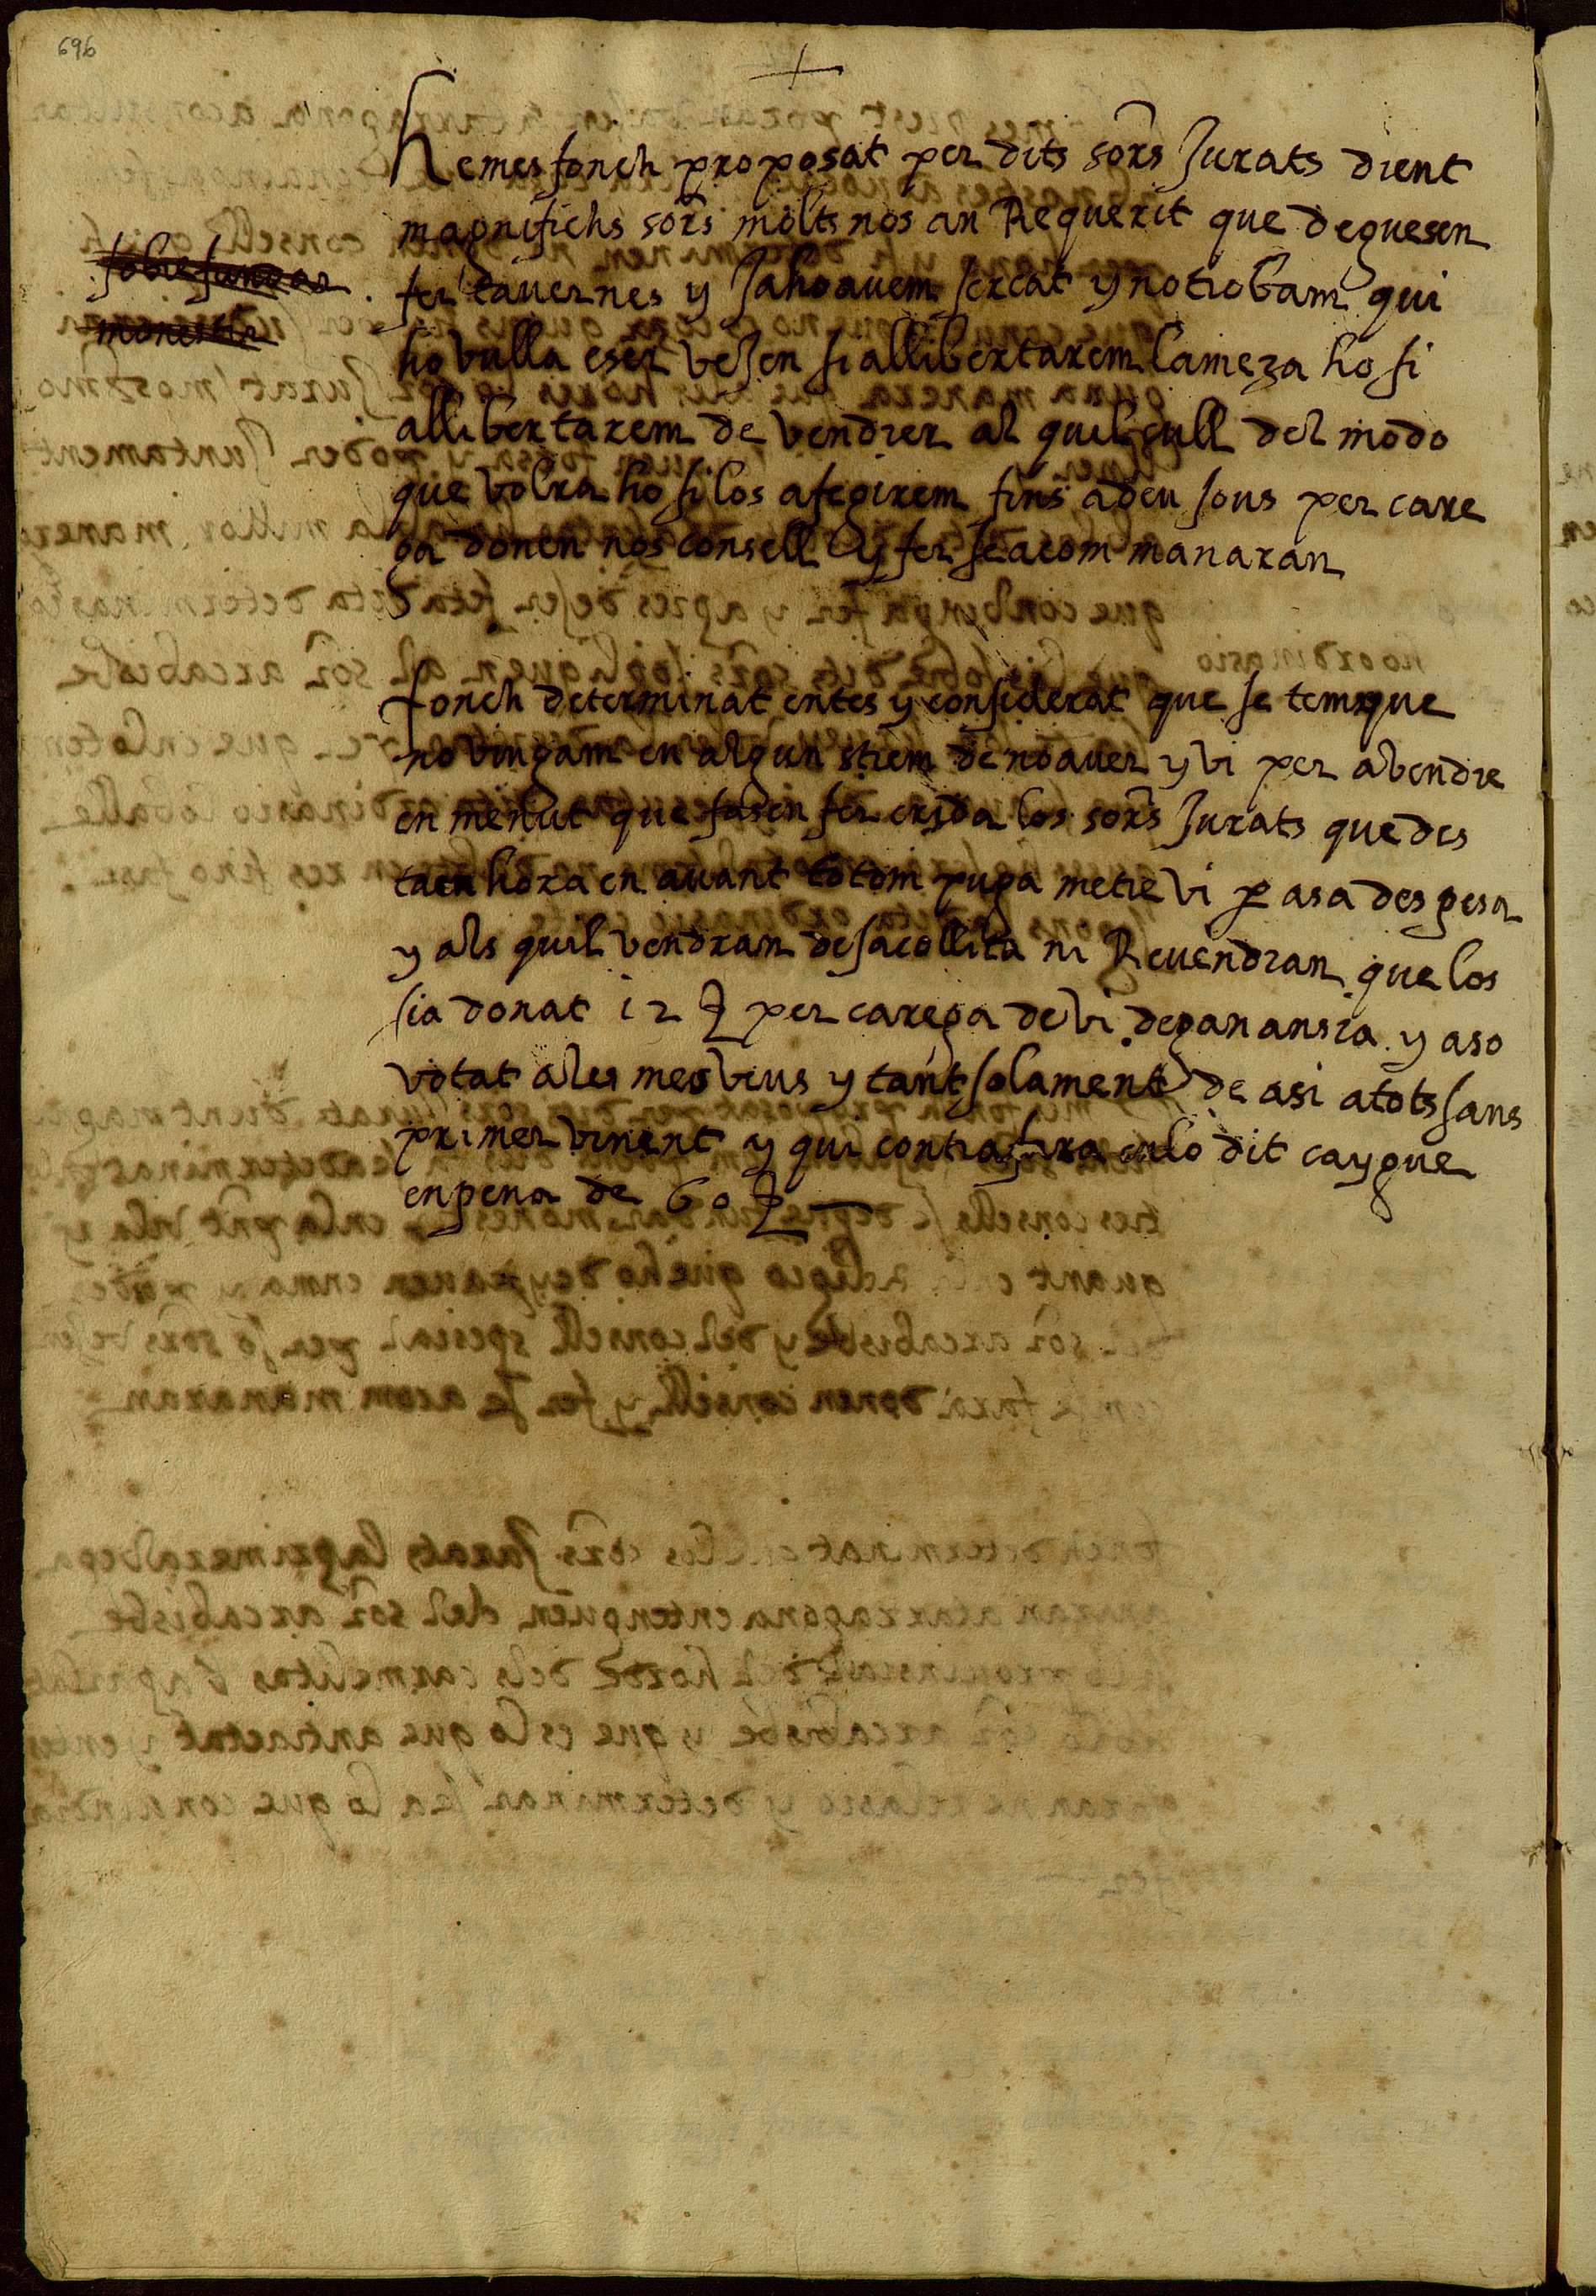 696
+
hemes fonch proposat per dits sors Jurats dient
magnifichs sors molts nos an Requerit que deguesen
fer tavernes y Ja ho avem sercat y no trobam qui
ho vulla eser veJen si allibertarem la meza ho si
allibertarem de vendrer al quil cull del modo
que volra ho si los afegirem fins a deu sous per care
ga donen nos consell y fer se a com manaran
sobre fundar
monestir
fonch determinat entes y considerat que se tem que
no vingam en algun strem de no aver y vi per a vendre
en menut que fasen fer crida los sors Jurats que des
ta en hora en avant totom puga metre vi per a sa despesa
y als quil vendran de sa collita ni Revendran que los
sia donat 12 per carega de vi de ganansia y aso
votat a les mes veus y tant solament de asi a tots sans
primer vinent y qui contrafara en lo dit caygue
en pena de 60